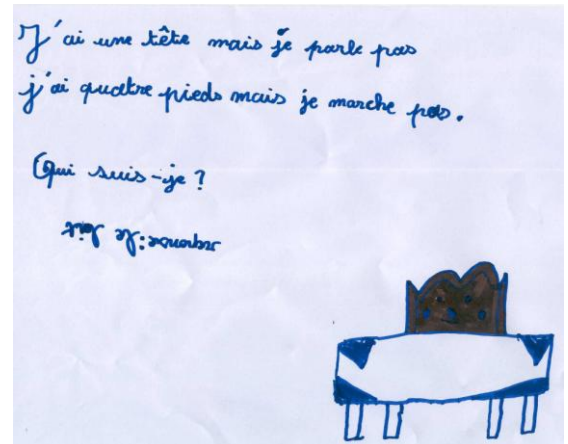 J'ai une tête mais je parle pas
j'ai quatre pieds mais je marche pas.
Qui suis-je ?
réponse : le